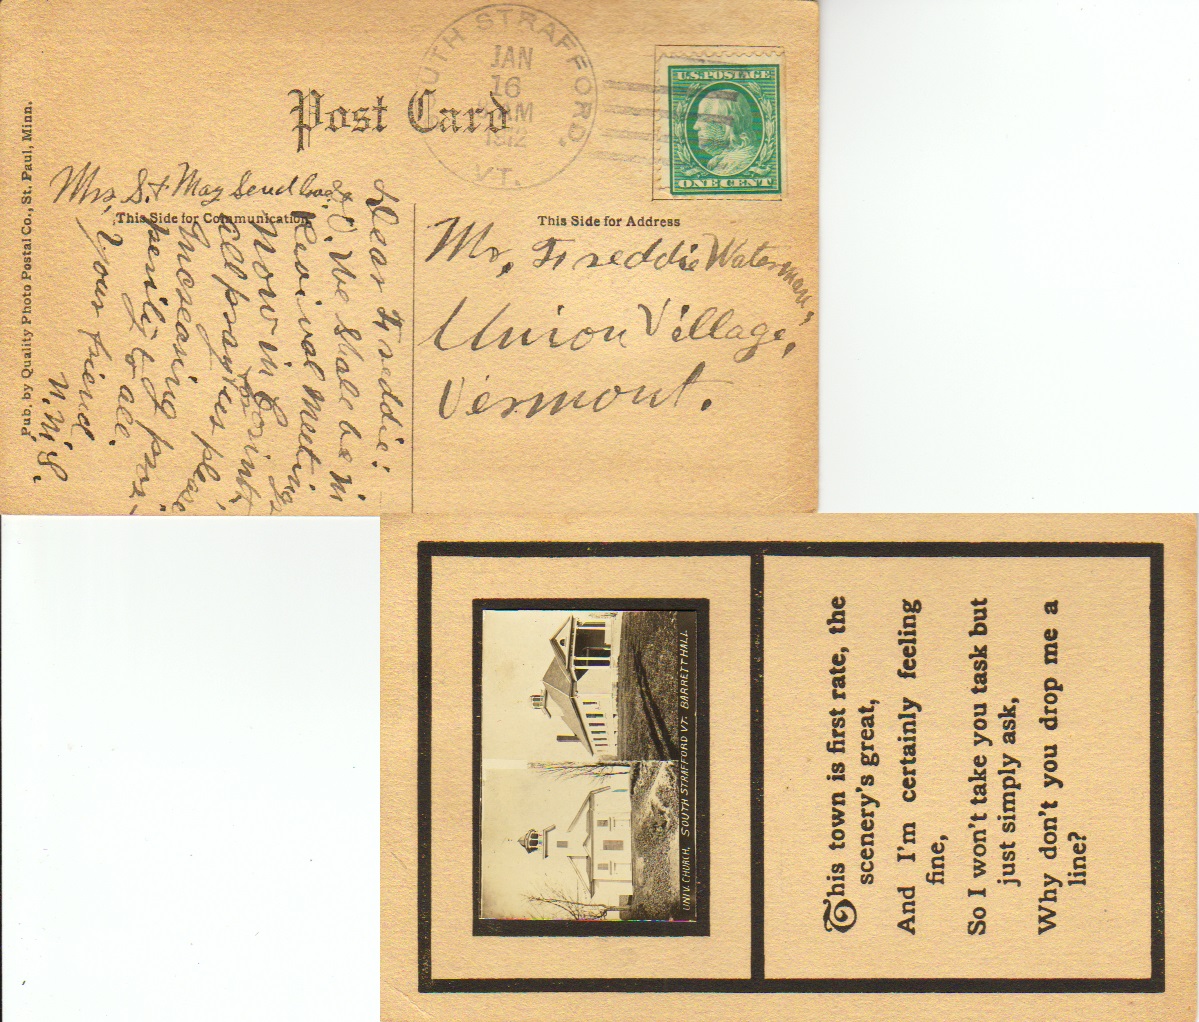 Post Card
SOUTH STRAFFORD.
JAN
16
AM
1912
VT.
U.S. POSTAGE
ONE CENT
Pub. by Quality Photo Postal Co., St. Paul, Minn.
This Side for Communication
This Side for Address
Mr. Freddie Waterman,
Union Village,
Vermont.
Mrs. S. & May Send love.
Dear Freddie:
We Shall be in
Revival Meetings
Now in
all pray
please
Increasing pros-
perity to all.
Your friend
UNIV. CHURCH. SOUTH STRAFFORD VT. BARRETT HALL
This town is first rate, the
scenery's great,
And I'm certainly feeling
fine,
So I won't take you task but
just simply ask,
Why don't you drop me a
line?